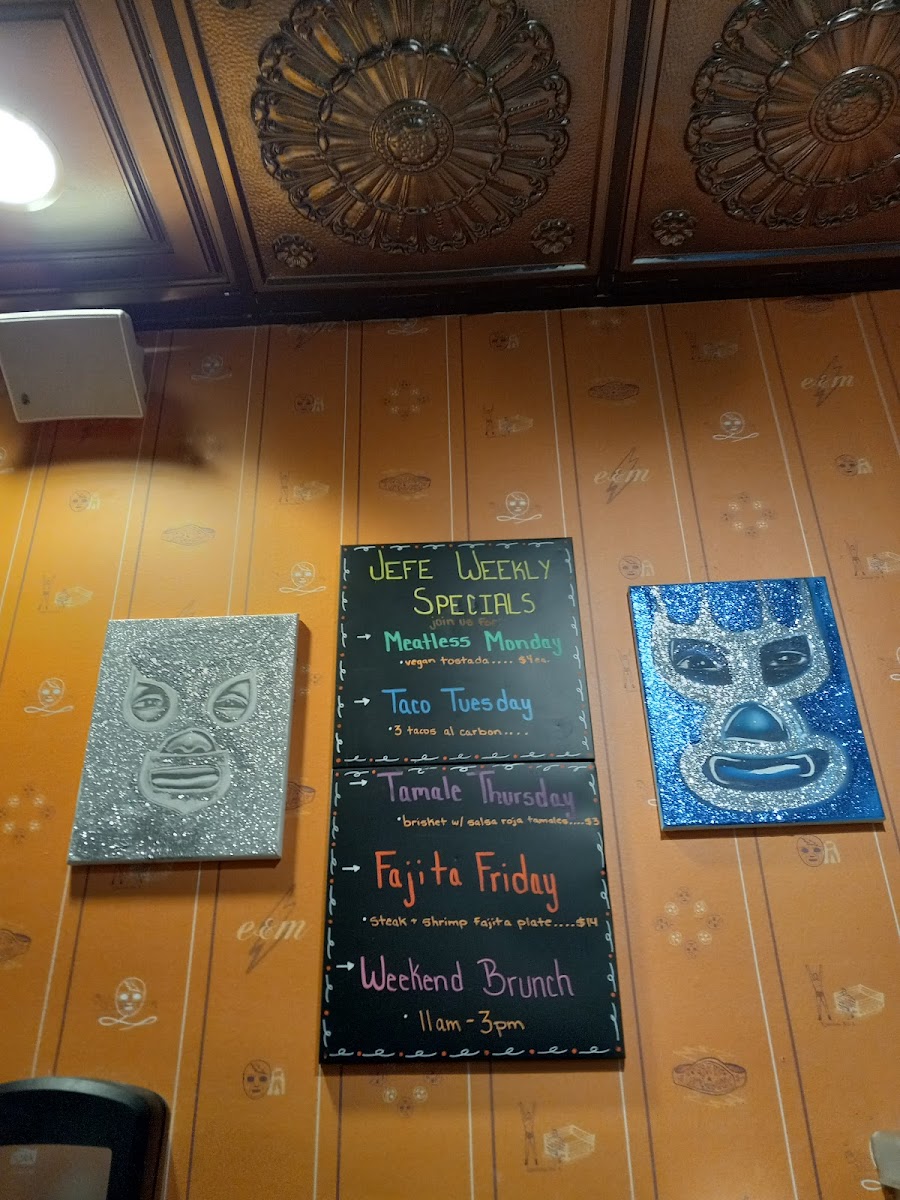 JEFE WEEKLY
SPECIALS
join us for:
→ Meatless Monday
• vegan tostada.... $4 ea.
→ Taco Tuesday
• 3 tacos al carbon....
→ Tamale Thursday
• brisket w/ salsa roja tamales....$3
→ Fajita Friday
• Steak + Shrimp Fajita plate....$14
→ Weekend Brunch
• 11am - 3pm
e&m
e&m
e&m